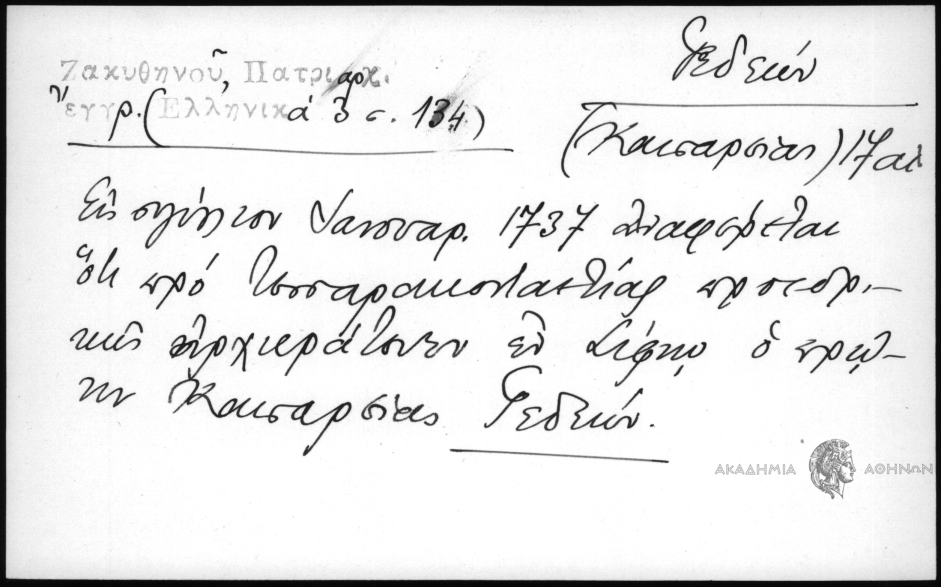 Ζακυθηνοῦ, Πατριαρχ.
ἔγγρ. (Ἑλληνικά 3 σ. 134)
Γεδεών
(Καισαρείας) 17 αἰ
Εἰς Ἰανουαρ. 1737 ἀναφέρεται
ὅτι πρό τεσσαρακονταετίας προεδρι-
κῶς ἀρχιεράτευεν ἐν Σίφνῳ ὁ πρώ-
ην Καισαρείας Γεδεών.
ΑΚΑΔΗΜΙΑ ΑΘΗΝΩΝ